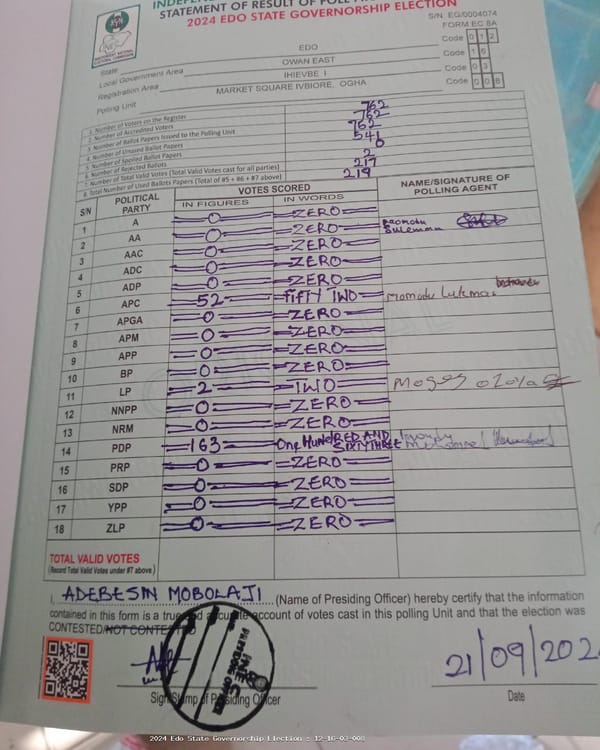 STATEMENT OF RESULT OF POLL
2024 EDO STATE GOVERNORSHIP ELECTION
S/N EG/0004074
FORM EC 8A
State EDO Code 0 1 2
Local Government Area OWAN EAST Code 1 6
Registration Area IHIEVBE I Code 0 3
Polling Unit MARKET SQUARE IVBIORE, OGHA Code 0 0 8
1. Number of Voters on the Register 762
2. Number of Accredited Voters 762
3. Number of Ballot Papers Issued to the Polling Unit 762
4. Number of Unused Ballot Papers 546
5. Number of Spoiled Ballot Papers
6. Number of Rejected Ballots 2
7. Number of Total Valid Votes (Total Valid Votes cast for all parties) 217
8. Total Number of Used Ballots Papers (Total of #5 + #6 + #7 above) 219
S/N POLITICAL PARTY VOTES SCORED NAME/SIGNATURE OF POLLING AGENT
IN FIGURES IN WORDS
1 A 0 ZERO
2 AA 0 ZERO
3 AAC 0 ZERO
4 ADC 0 ZERO
5 ADP 0 ZERO
6 APC 52 FIFTY TWO Momodu
7 APGA 0 ZERO
8 APM 0 ZERO
9 APP 0 ZERO
10 BP 0 ZERO
11 LP 2 TWO
12 NNPP 0 ZERO
13 NRM 0 ZERO
14 PDP 163 One HUNDRED AND SIXTY THREE
15 PRP 0 ZERO
16 SDP 0 ZERO
17 YPP 0 ZERO
18 ZLP 0 ZERO
TOTAL VALID VOTES
(Record Total Valid Votes under #7 above)
I, ADEBESIN MOBOLAJI (Name of Presiding Officer) hereby certify that the information
contained in this form is a true and accurate account of votes cast in this polling Unit and that the election was
CONTESTED/NOT CONTESTED
21/09/202
Sign/Stamp of Presiding Officer Date
2024 Edo State Governorship Election : 12-16-03-008